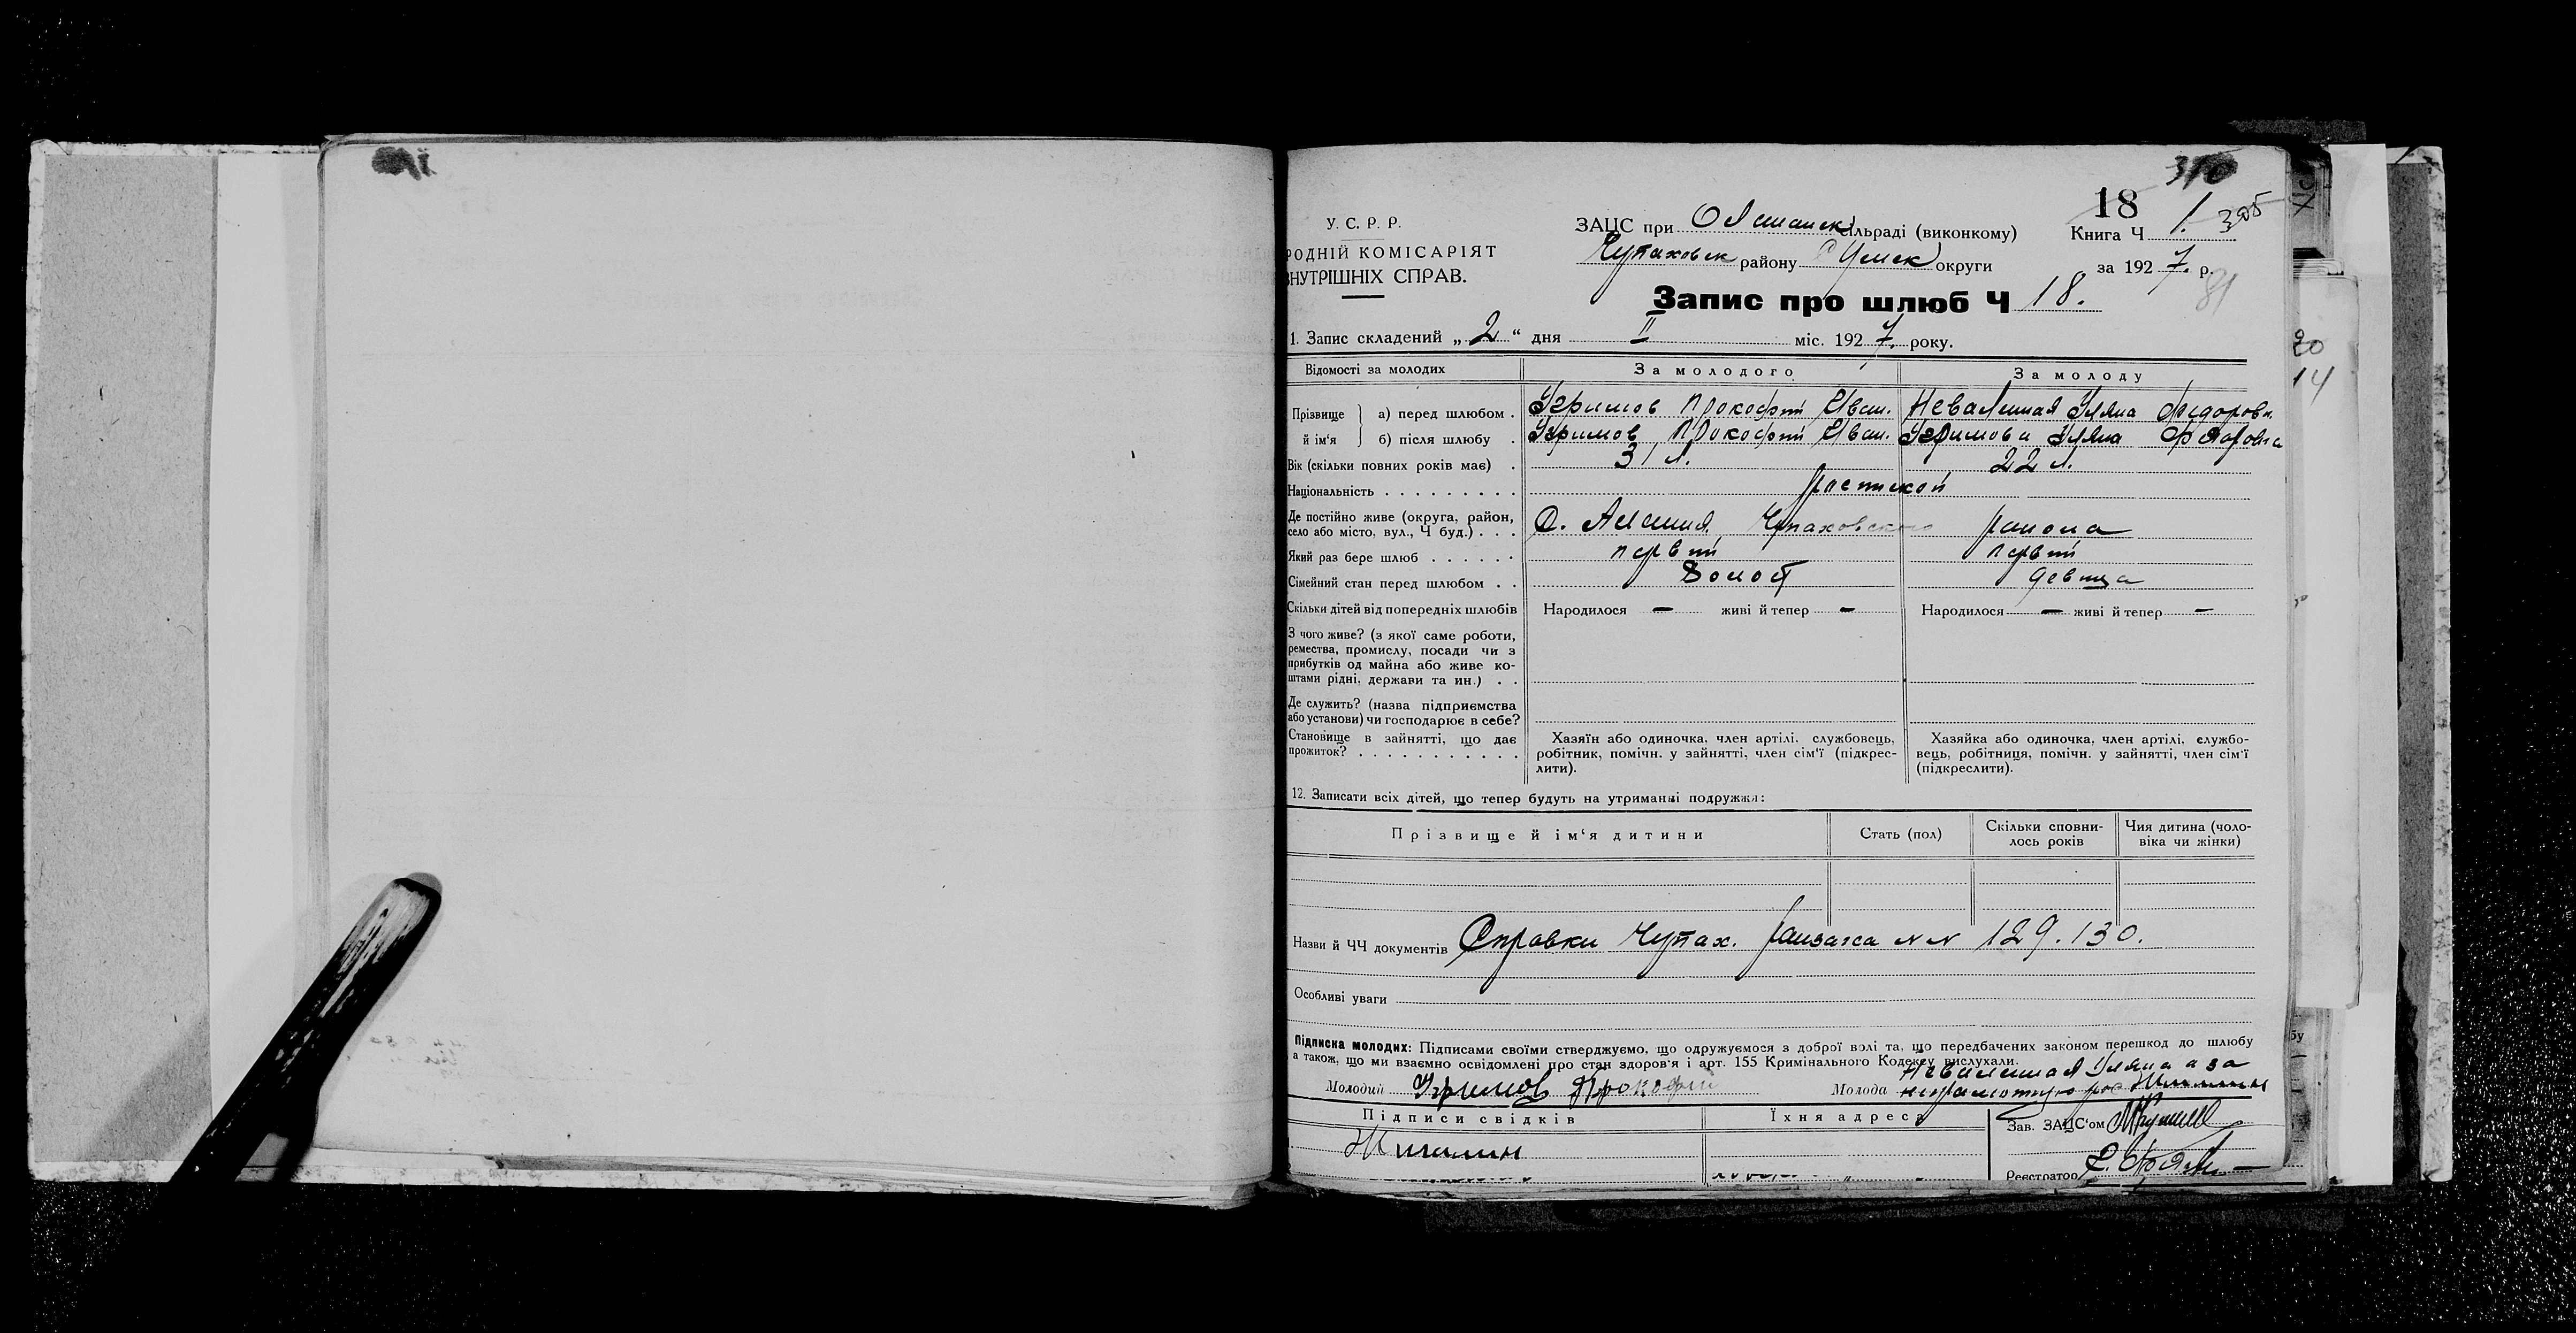 310
18
У. С. Р. Р.
ЗАЦС при сільраді (виконкому)
Книга Ч 1. 305
РОДНІЙ КОМІСАРІЯТ
Чупаховск району Сумск округи
за 1927. р.
ВНУТРІШНІХ СПРАВ.
81
Запис про шлюб Ч 18.
1. Запис складений „2“ дня II міс. 1927. року.
Відомості за молодих
За молодого
За молоду
Прізвище й ім'я
а) перед шлюбом . Угримов Прокофий Иван. Уляна Федоровн.
б) після шлюбу . Угримов Прокофий Иван. Угримова Уляна Федоровна
Вік (скільки повних років має) . 31 л. 22 л.
Національність . . . . . . . . .
Де постійно живе (округа, район, село або місто, вул., Ч буд.) . . . С. Чупаховского района
Який раз бере шлюб . . . . . . первий первий
Сімейний стан перед шлюбом . . девица
Скільки дітей від попередніх шлюбів Народилося — живі й тепер — Народилося — живі й тепер —
З чого живе? (з якої саме роботи,
ремества, промислу, посади чи з
прибутків од майна або живе ко-
штами рідні, держави та ин.) . .
Де служить? (назва підприємства
або установи) чи господарює в себе?
Становище в зайнятті, що дає
прожиток? . . . . . . . . . . .
Хазяїн або одиночка, член артілі, службовець,
робітник, помічн. у зайнятті, член сім'ї (підкрес-
лити).
Хазяйка або одиночка, член артілі, службо-
вець, робітниця, помічн. у зайнятті, член сім'ї
(підкреслити).
12. Записати всіх дітей, що тепер будуть на утриманні подружжя:
Прізвище й ім'я дитини
Стать (пол)
Скільки сповни-
лось років
Чия дитина (чоло-
віка чи жінки)
Назви й ЧЧ документів Справки Чупах. райзагса N N 129.130.
Особливі уваги
Підписка молодих: Підписами своїми стверджуємо, що одружуємося з доброї волі та, що передбачених законом перешкод до шлюбу
а також, що ми взаємно освідомлені про стан здоров'я і арт. 155 Кримінального Кодексу вислухали.
Молодий Угримов Прокофий
Молода Уляна а за
неграмотную рос
Підписи свідків
Їхня адреса
Зав. ЗАЦС'ом
Реєстратор
20
14